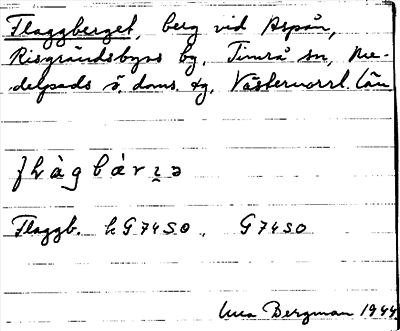 Flaggberget, berg vid Aspån,
Risgrändsbyns by. Timrå sn, Me-
delpads ö. doms. tg, Västernorrl. län
Flaggb. h G 74 S.O., G 74 SO
Bergman 1944